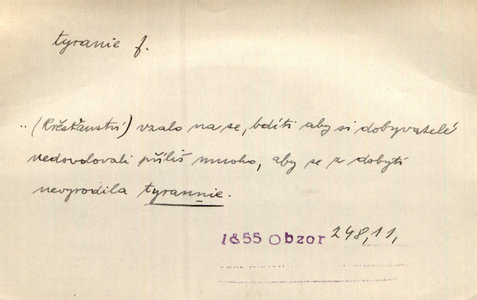 tyranie f.
„(Křesťanství) vzalo na se, bdíti aby si dobyvatelé
nedovolovali příliš mnoho, aby se z dobytí
nevyrodila tyrannie.
1855 Obzor 248,11,